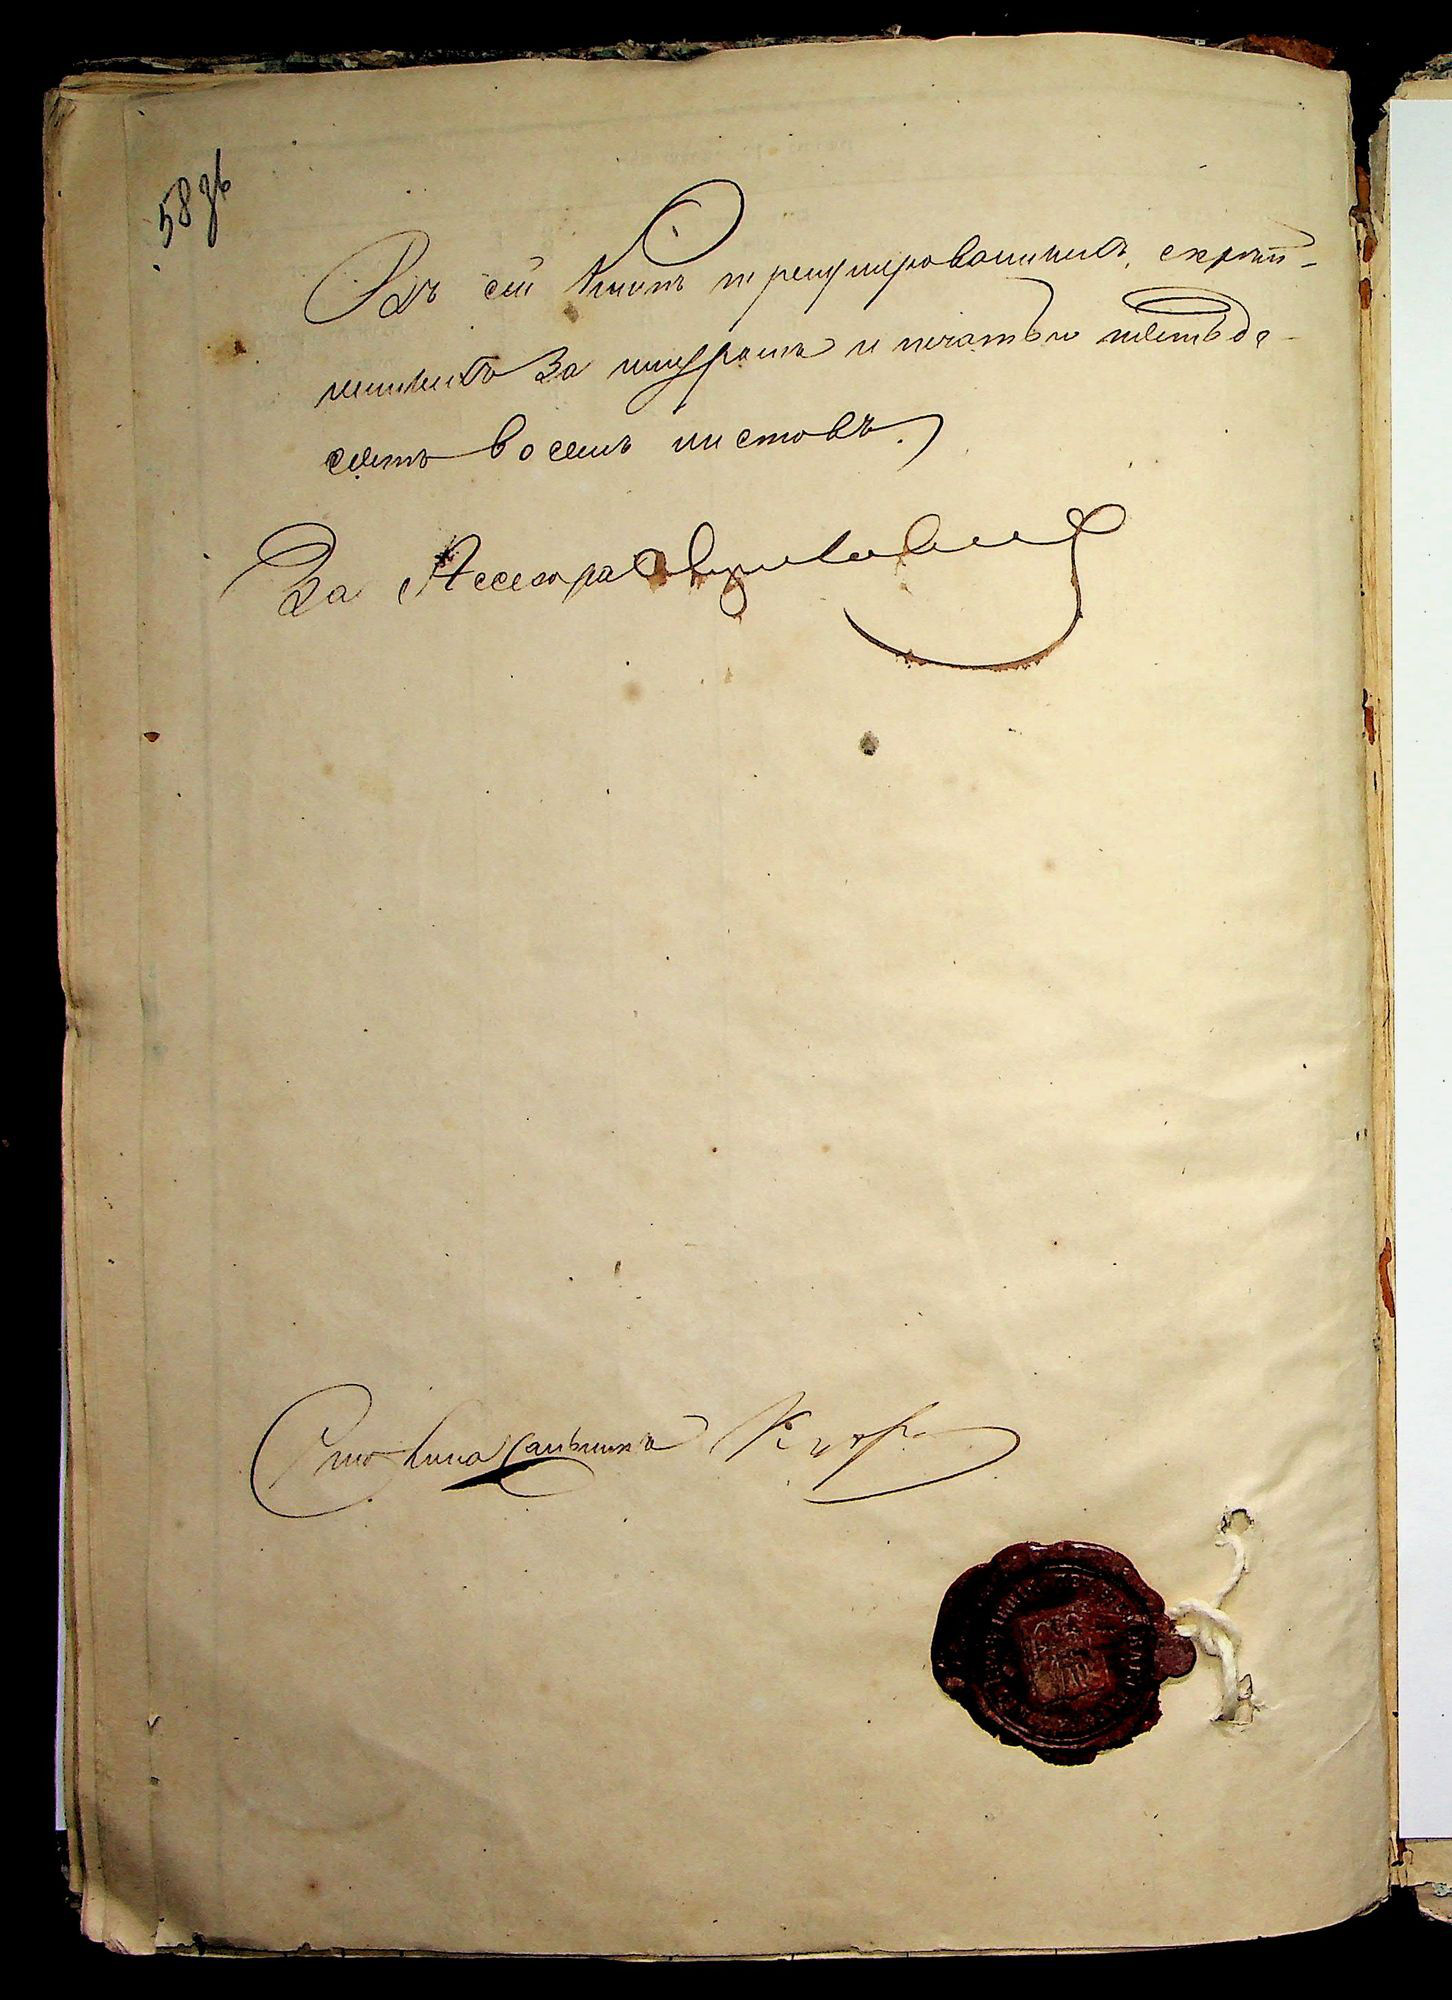 58 зв
Въ сей Книгѣ пренумерованныхъ, скрѣп-
ленныхъ за шнуромъ и печатью пятьде-
сятъ восемь листовъ.
За Ассесора
Столоначальникъ